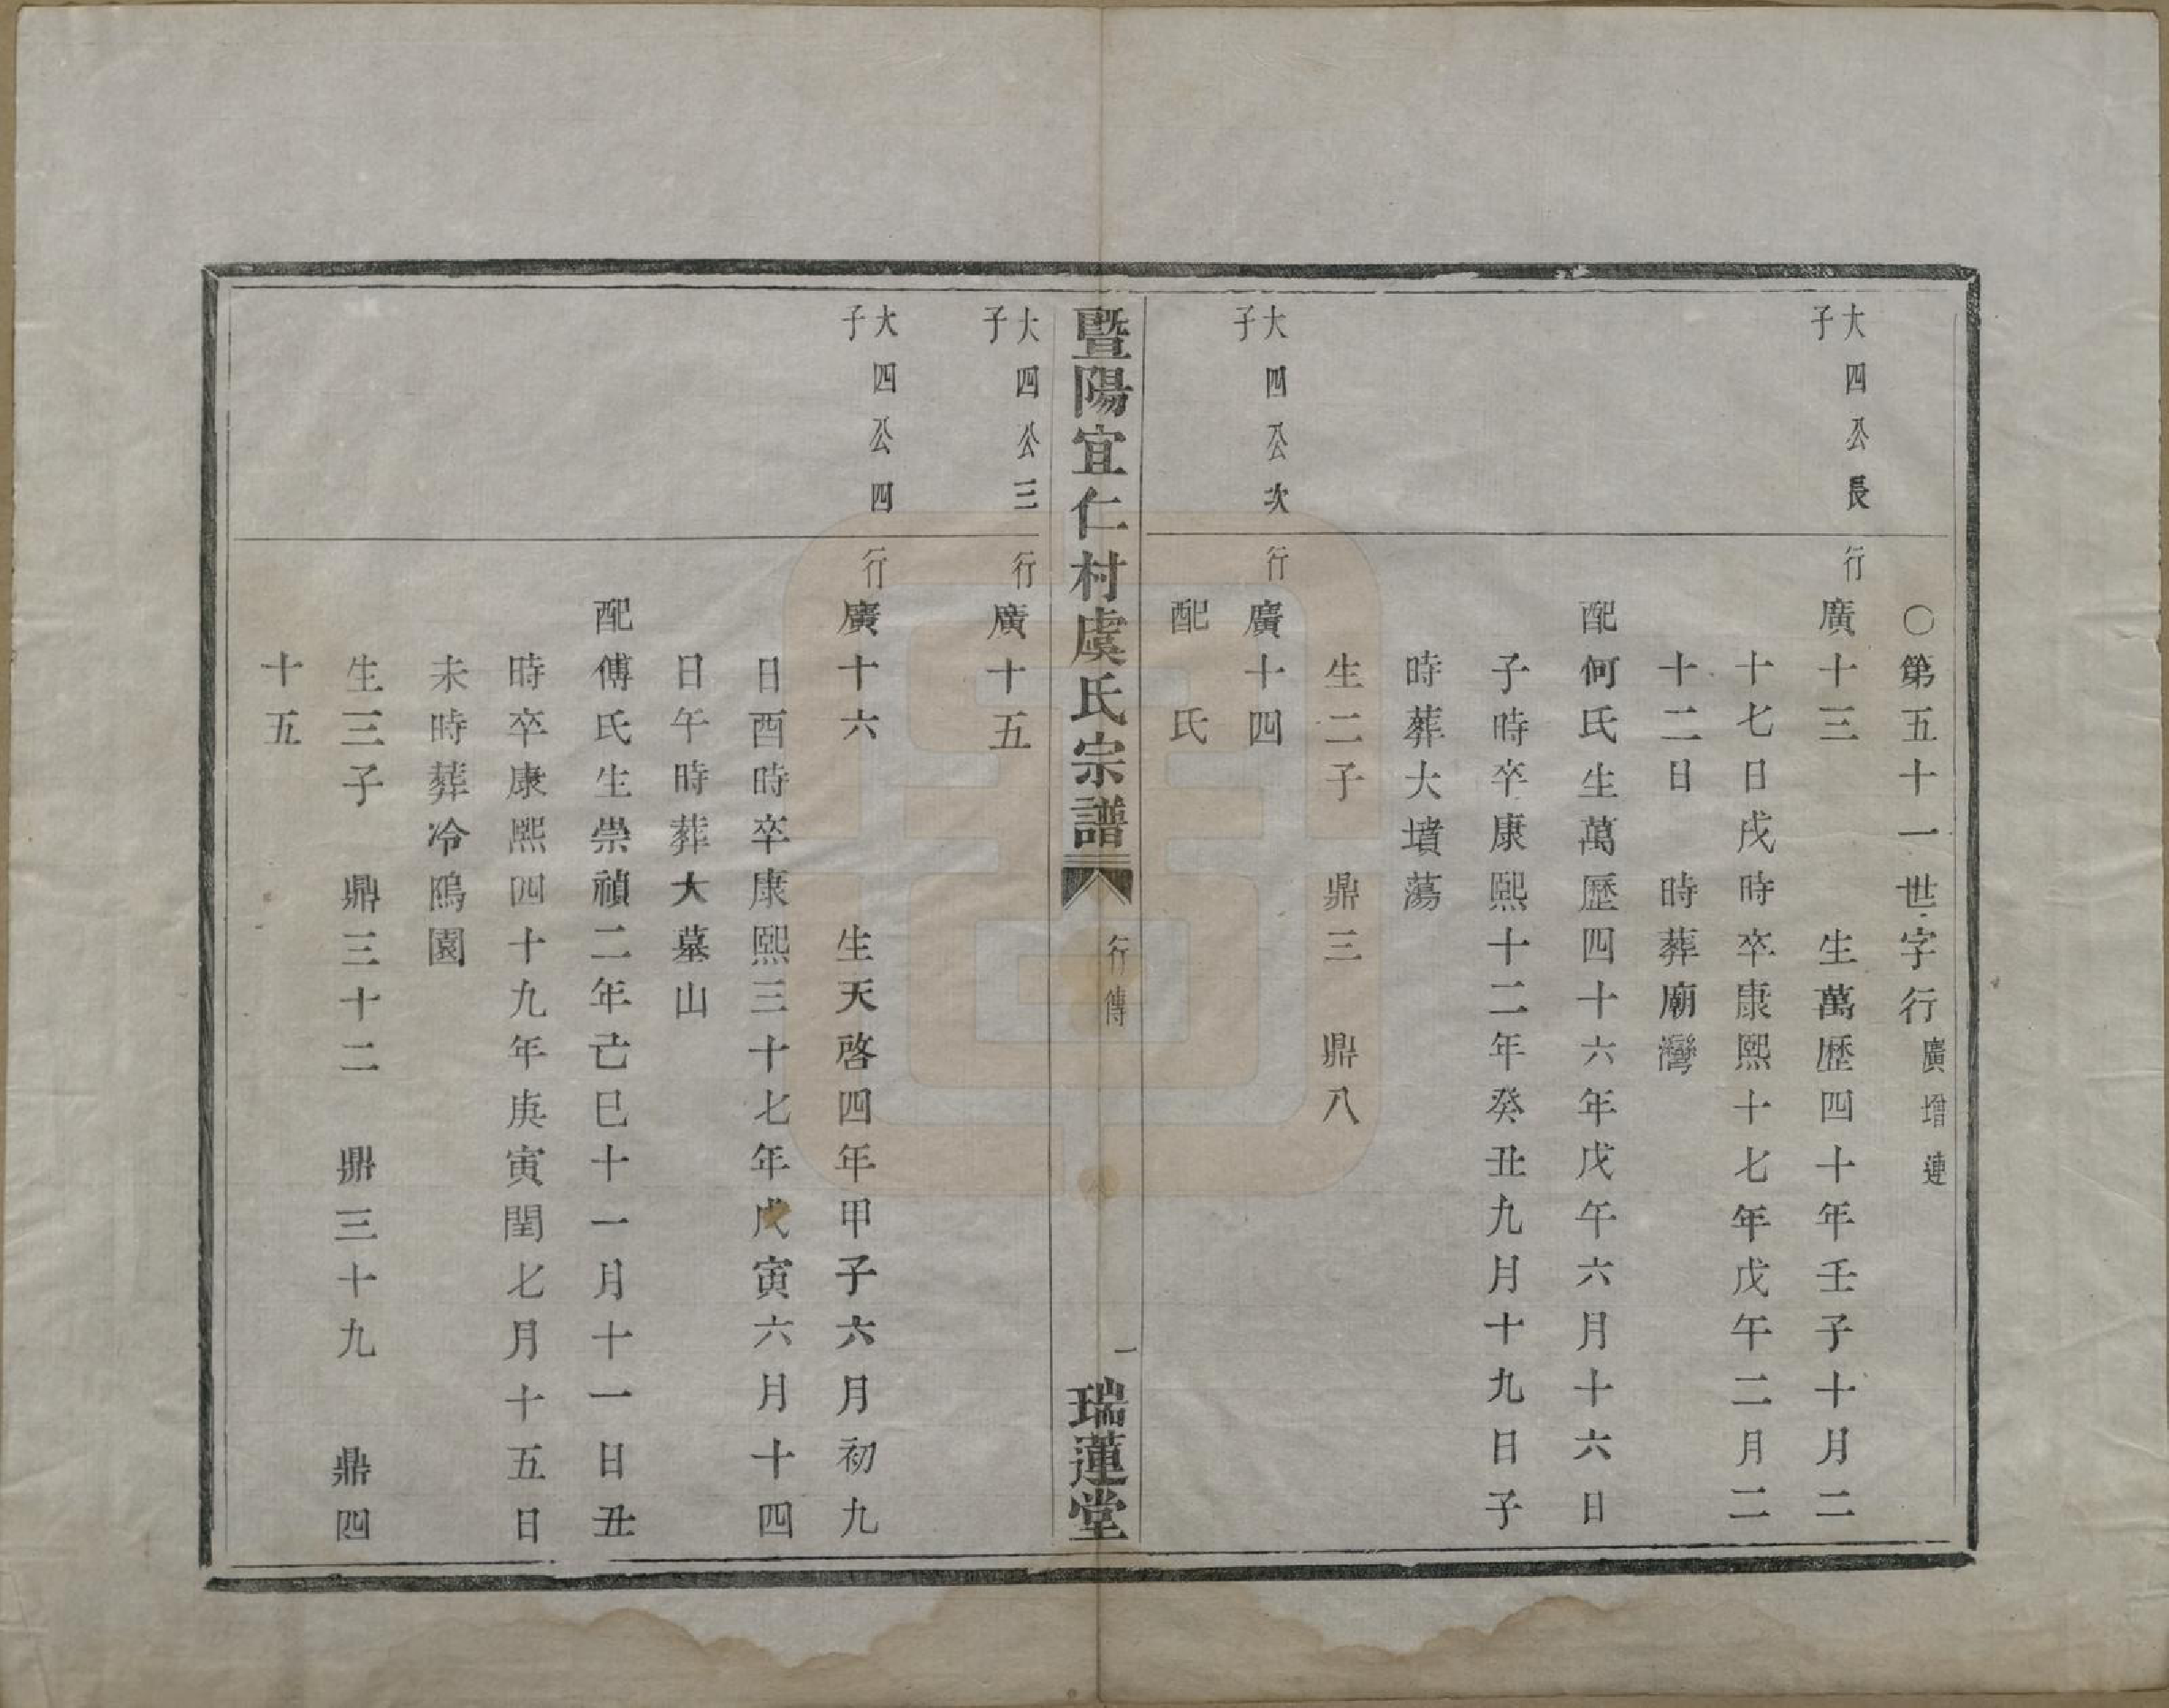 ○第五十一世字行廣增連
大四公長子
行廣十三 生萬歷四十年壬子十月二
十七日戌時卒康熙十七年戊午二月二
十二日 時葬廟灣
配何氏生萬歷四十六年戊午六月十六日
子時卒康熙十二年癸丑九月十九日子
時葬大墳蕩
生二子 鼎三 鼎八
大四公次子
行廣十四
配 氏
暨陽宜仁村虞氏宗譜 行傳 一 瑞蓮堂
大四公三子
行廣十五
大四公四子
行廣十六 生天啓四年甲子六月初九
日酉時卒康熙三十七年戊寅六月十四
日午時葬大墓山
配傅氏生崇禎二年己巳十一月十一日丑
時卒康熙四十九年庚寅閏七月十五日
未時葬冷隖園
生三子 鼎三十二 鼎三十九 鼎四
十五